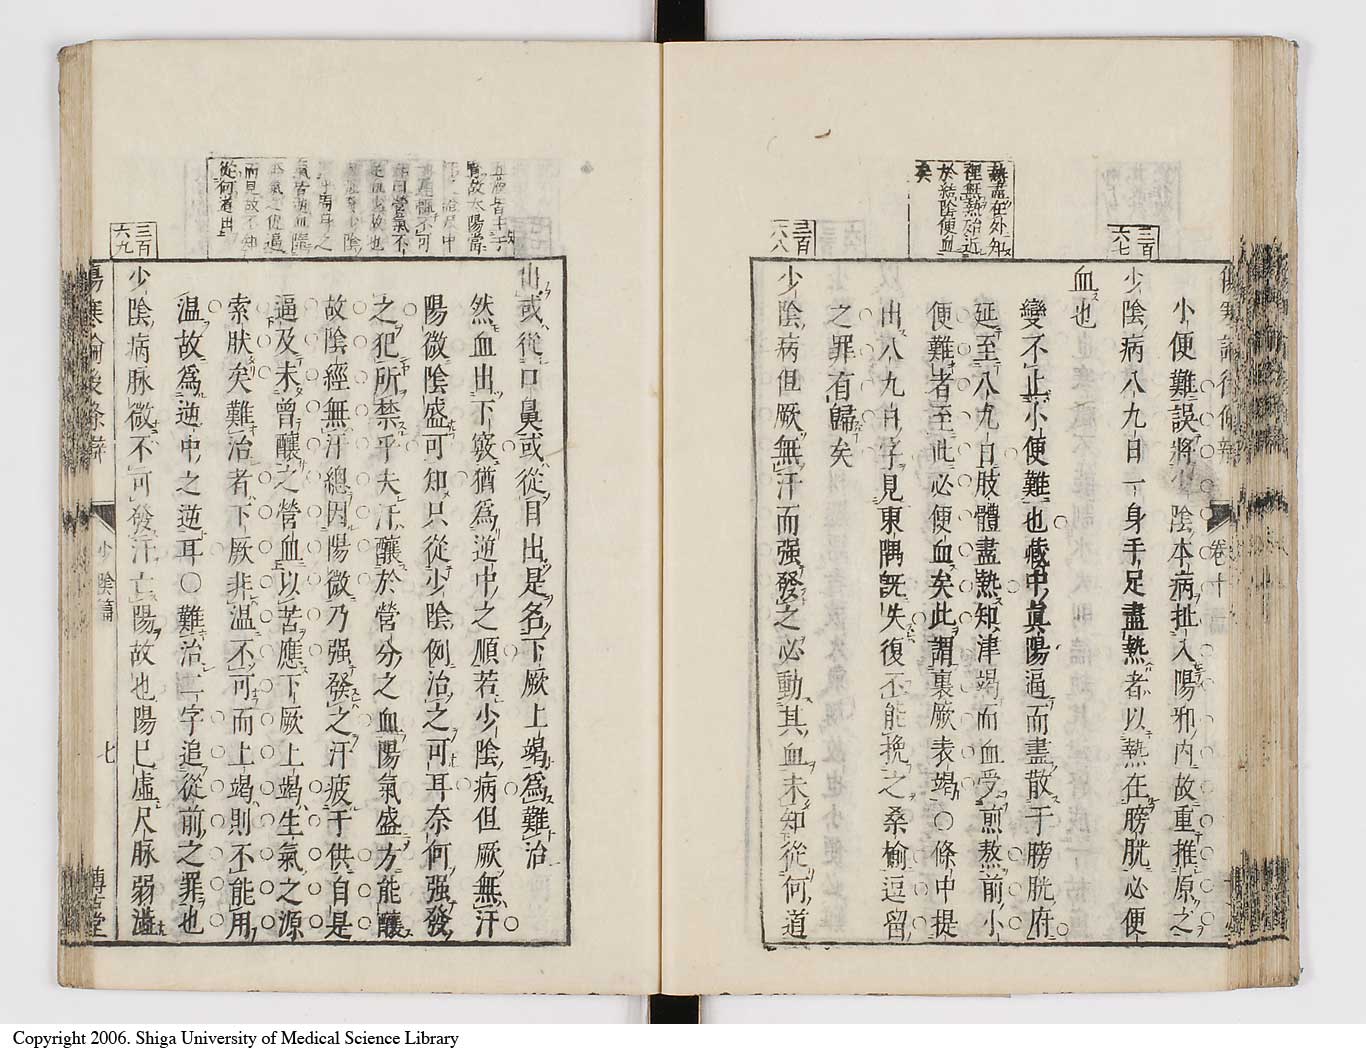 三百
六七
小便難誤將少陰本病扯入陽邪內故重推原之
少陰病八九日一身手足盡熱者以熱在膀胱必便
血也
變不止小便難也藏中眞陽逼而盡散于膀胱府
延至八九日肢體盡熱知津竭而血受煎熬前小
便難者至此必便血矣此謂裏厥表竭○條中提
出八九日字見東隅旣失復不能挽之桑榆逗留
之罪有歸矣
少陰病但厥無汗而强發之必動其血未知從何道
熱盡在外知
裡無熱殆近
於結陰便血
矣
三百
六八
卷十
出或從口鼻或從目出是名下厥上竭爲難治
然血出下竅猶爲逆中之順若少陰病但厥無汗
陽微陰盛可知只從少陰例治之可耳奈何强發
之犯所禁乎夫汗釀於營分之血陽氣盛方能釀
故陰經無汗總因陽微乃强發之汗疲于供自是
逼及未曾釀之營血以苦應下厥上竭生氣之源
索狀矣難治者下厥非溫不可而上竭則不能用
溫故爲逆中之逆耳○難治二字追從前之罪也
少陰病脉微不可發汗亡陽故也陽已虛尺脉弱濇
而見故不知
從何道出
三百
六九
傷寒論後條辯
少陰篇
七
博古堂
Copyright 2006. Shiga University of Medical Science Library